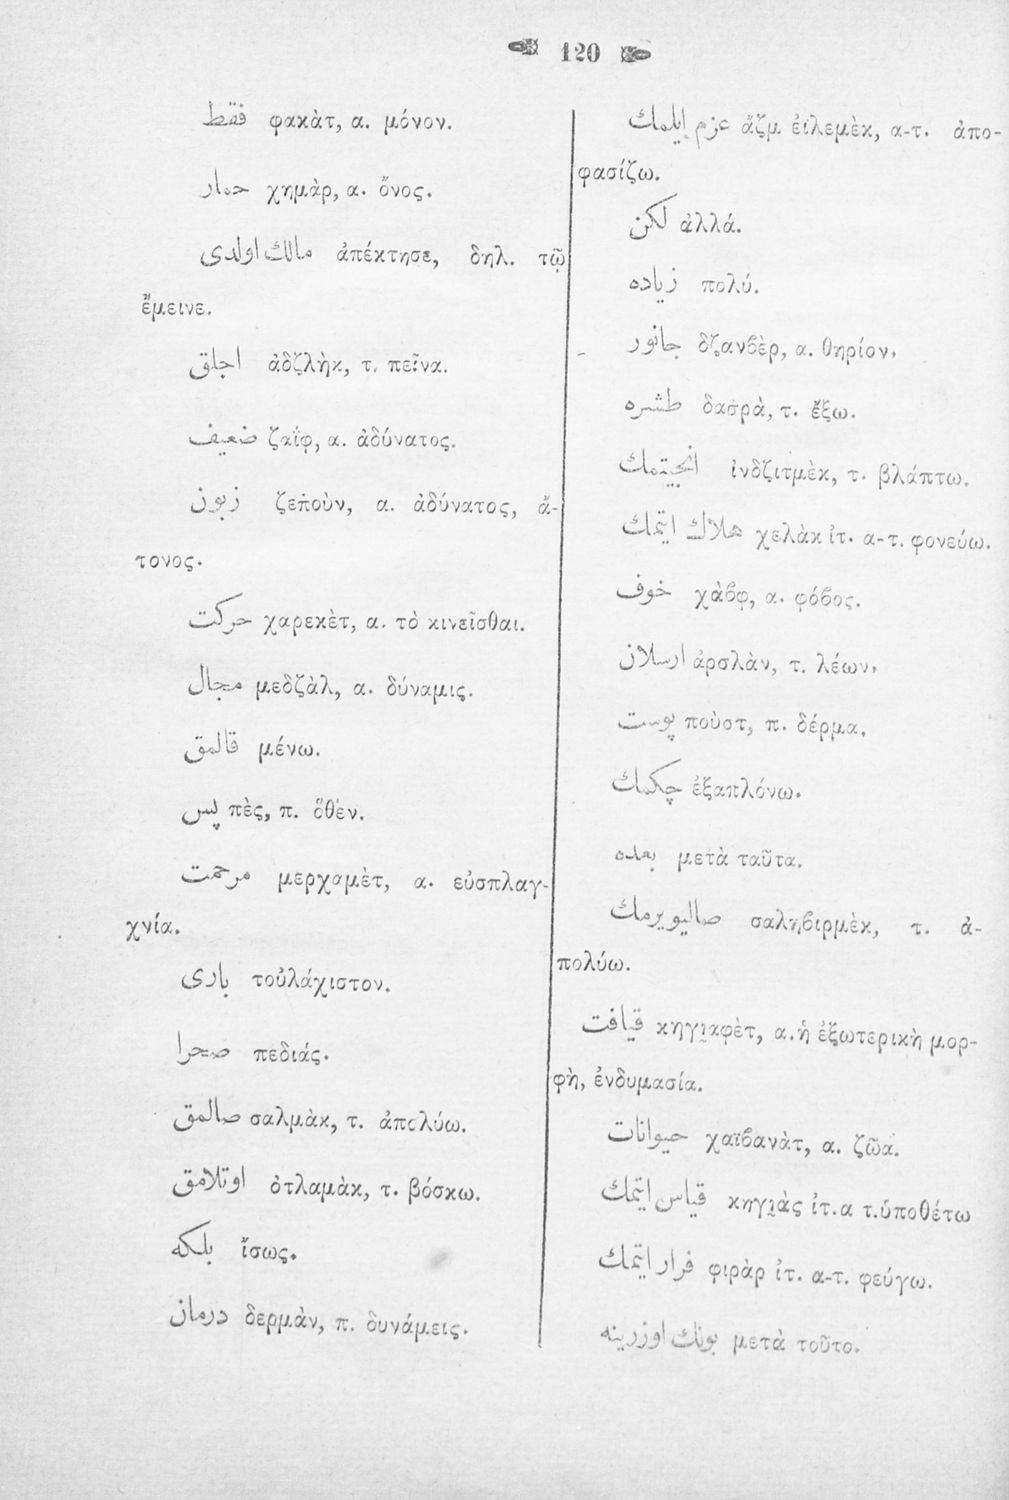 120
فقط φακὰτ, α. μόνον.
حمار χημὰρ, α. ὄνος.
مالك اولدى ἀπέκτησε, δηλ. τῷ
ἔμεινε.
اجلق ἀδζλὴκ, τ. πεῖνα.
ضعيف ζαΐφ, α. ἀδύνατος.
زبون ζεποὺν, α. ἀδύνατος, ἄ-
τονος.
حركت χαρεκὲτ, α. τὸ κινεῖσθαι.
مجال μεδζὰλ, α. δύναμις.
قالمق μένω.
پس πὲς, π. ὅθεν.
مرحمت μερχαμὲτ, α. εὐσπλαγ-
χνία.
بارى τοὐλάχιστον.
صحرا πεδιάς.
صالمق σαλμὰκ, τ. ἀπολύω.
اوتلامق ὀτλαμὰκ, τ. βόσκω.
بلكه ἴσως.
درمان δερμὰν, π. δυνάμεις.
عزم إيلمك ἄζμ ἐϊλεμὲκ, α-τ. ἀπο-
φασίζω.
لكن ἀλλά.
زياده πολύ.
جانور δζανϐὲρ, α. θηρίον.
طشره δασρὰ, τ. ἔξω.
انجيتمك ἰνδζιτμὲκ, τ. βλάπτω.
هلاك ايتمك χελὰκ ἰτ. α-τ. φονεύω.
خوف χὰϐφ, α. φόϐος.
ارسلان ἀρσλὰν, τ. λέων.
پوست ποὺστ, π. δέρμα.
چكمك ἐξαπλόνω.
بعده μετὰ ταῦτα.
صاليويرمك σαληϐιρμὲκ, τ. ἀ-
πολύω.
قيافت κηγιαφὲτ, α. ἡ ἐξωτερικὴ μορ-
φὴ, ἐνδυμασία.
حيوانات χαϊϐανὰτ, α. ζῶα.
قياس ايتمك κηγιὰς ἰτ. α τ. ὑποθέτω
فرار ايتمك φιρὰρ ἰτ. α-τ. φεύγω.
بونك اوزرينه μετὰ τοῦτο.